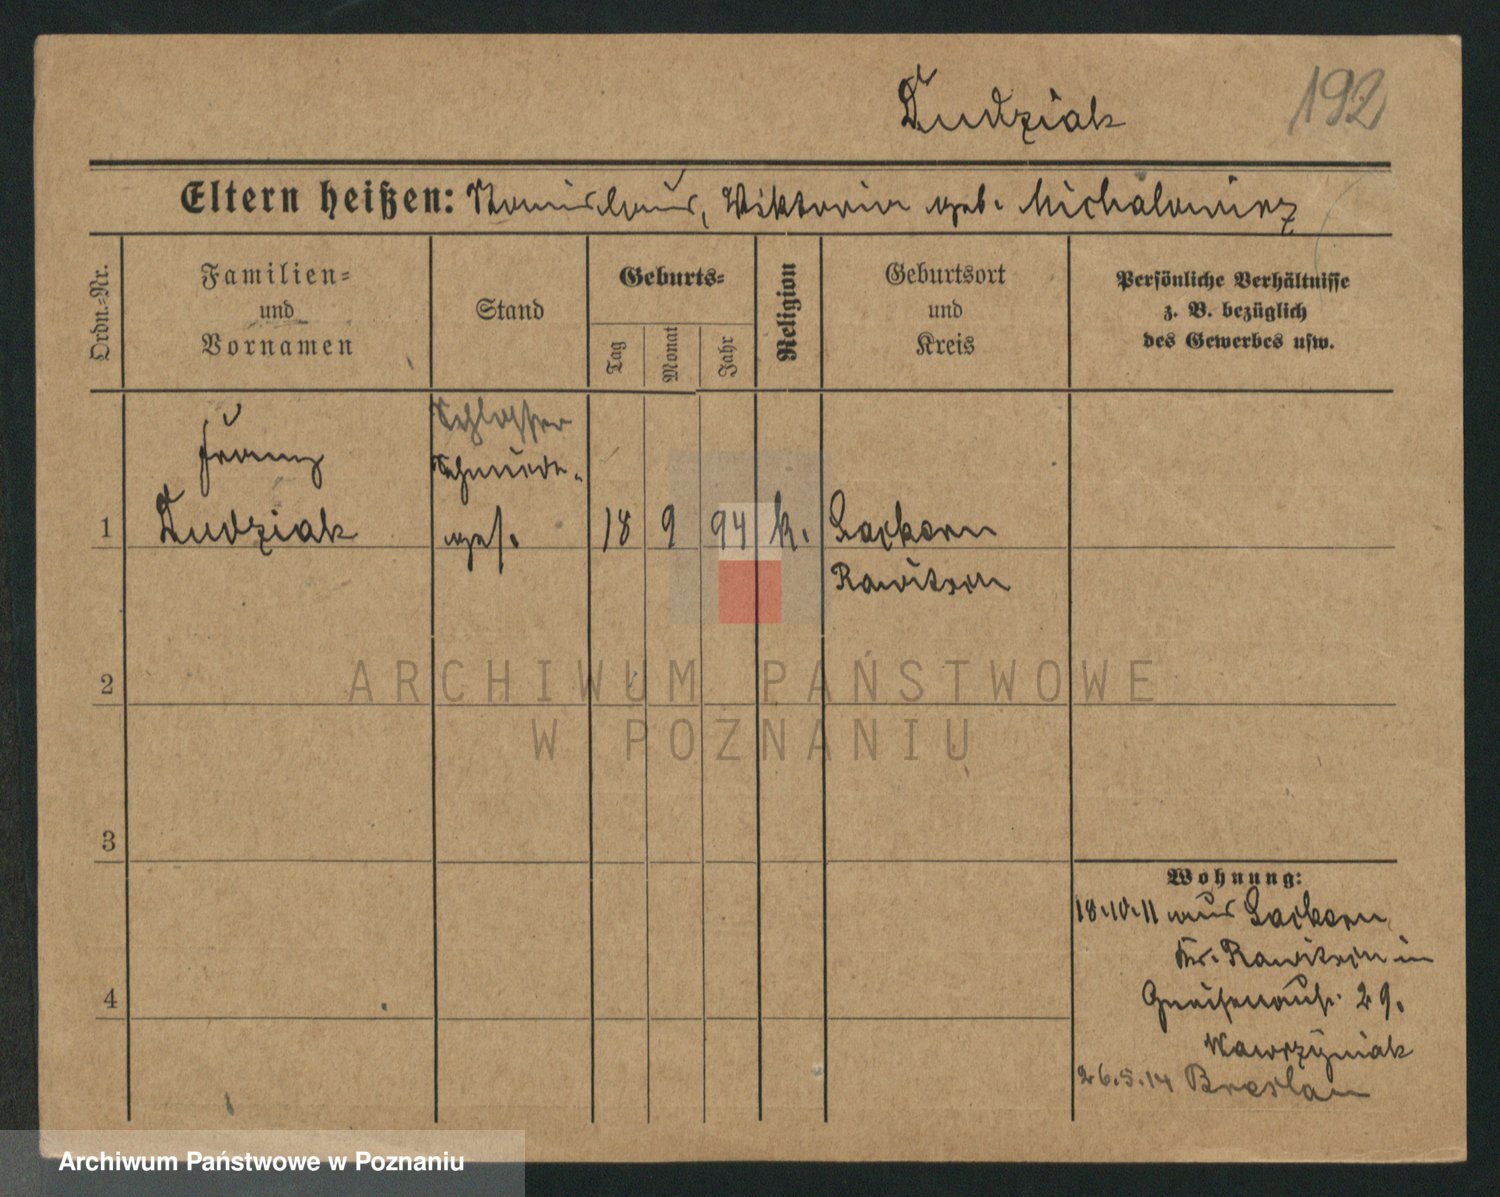 Dudziak
192
Eltern heißen: Stanislaus, Viktoria geb. Michalowicz
Ordn.-Nr.
Familien-
und
Vornamen
Stand
Geburts-
Tag
Monat
Jahr
Religion
Geburtsort
und
Kreis
Persönliche Verhältnisse
z. B. bezüglich
des Gewerbes usw.
Schlosser
Franz
Schmiede-
1 Dudziak ges. 18 9 94 k. Zaikorn
Rawitsch
2
ARCHIWUM PAŃSTWOWE
W POZNANIU
3
4
Wohnung:
18.10.11 aus
Kr. Rawitsch in
Gneisenaustr. 29.
Wawrzyniak
26.5.14 Breslau
Archiwum Państwowe w Poznaniu